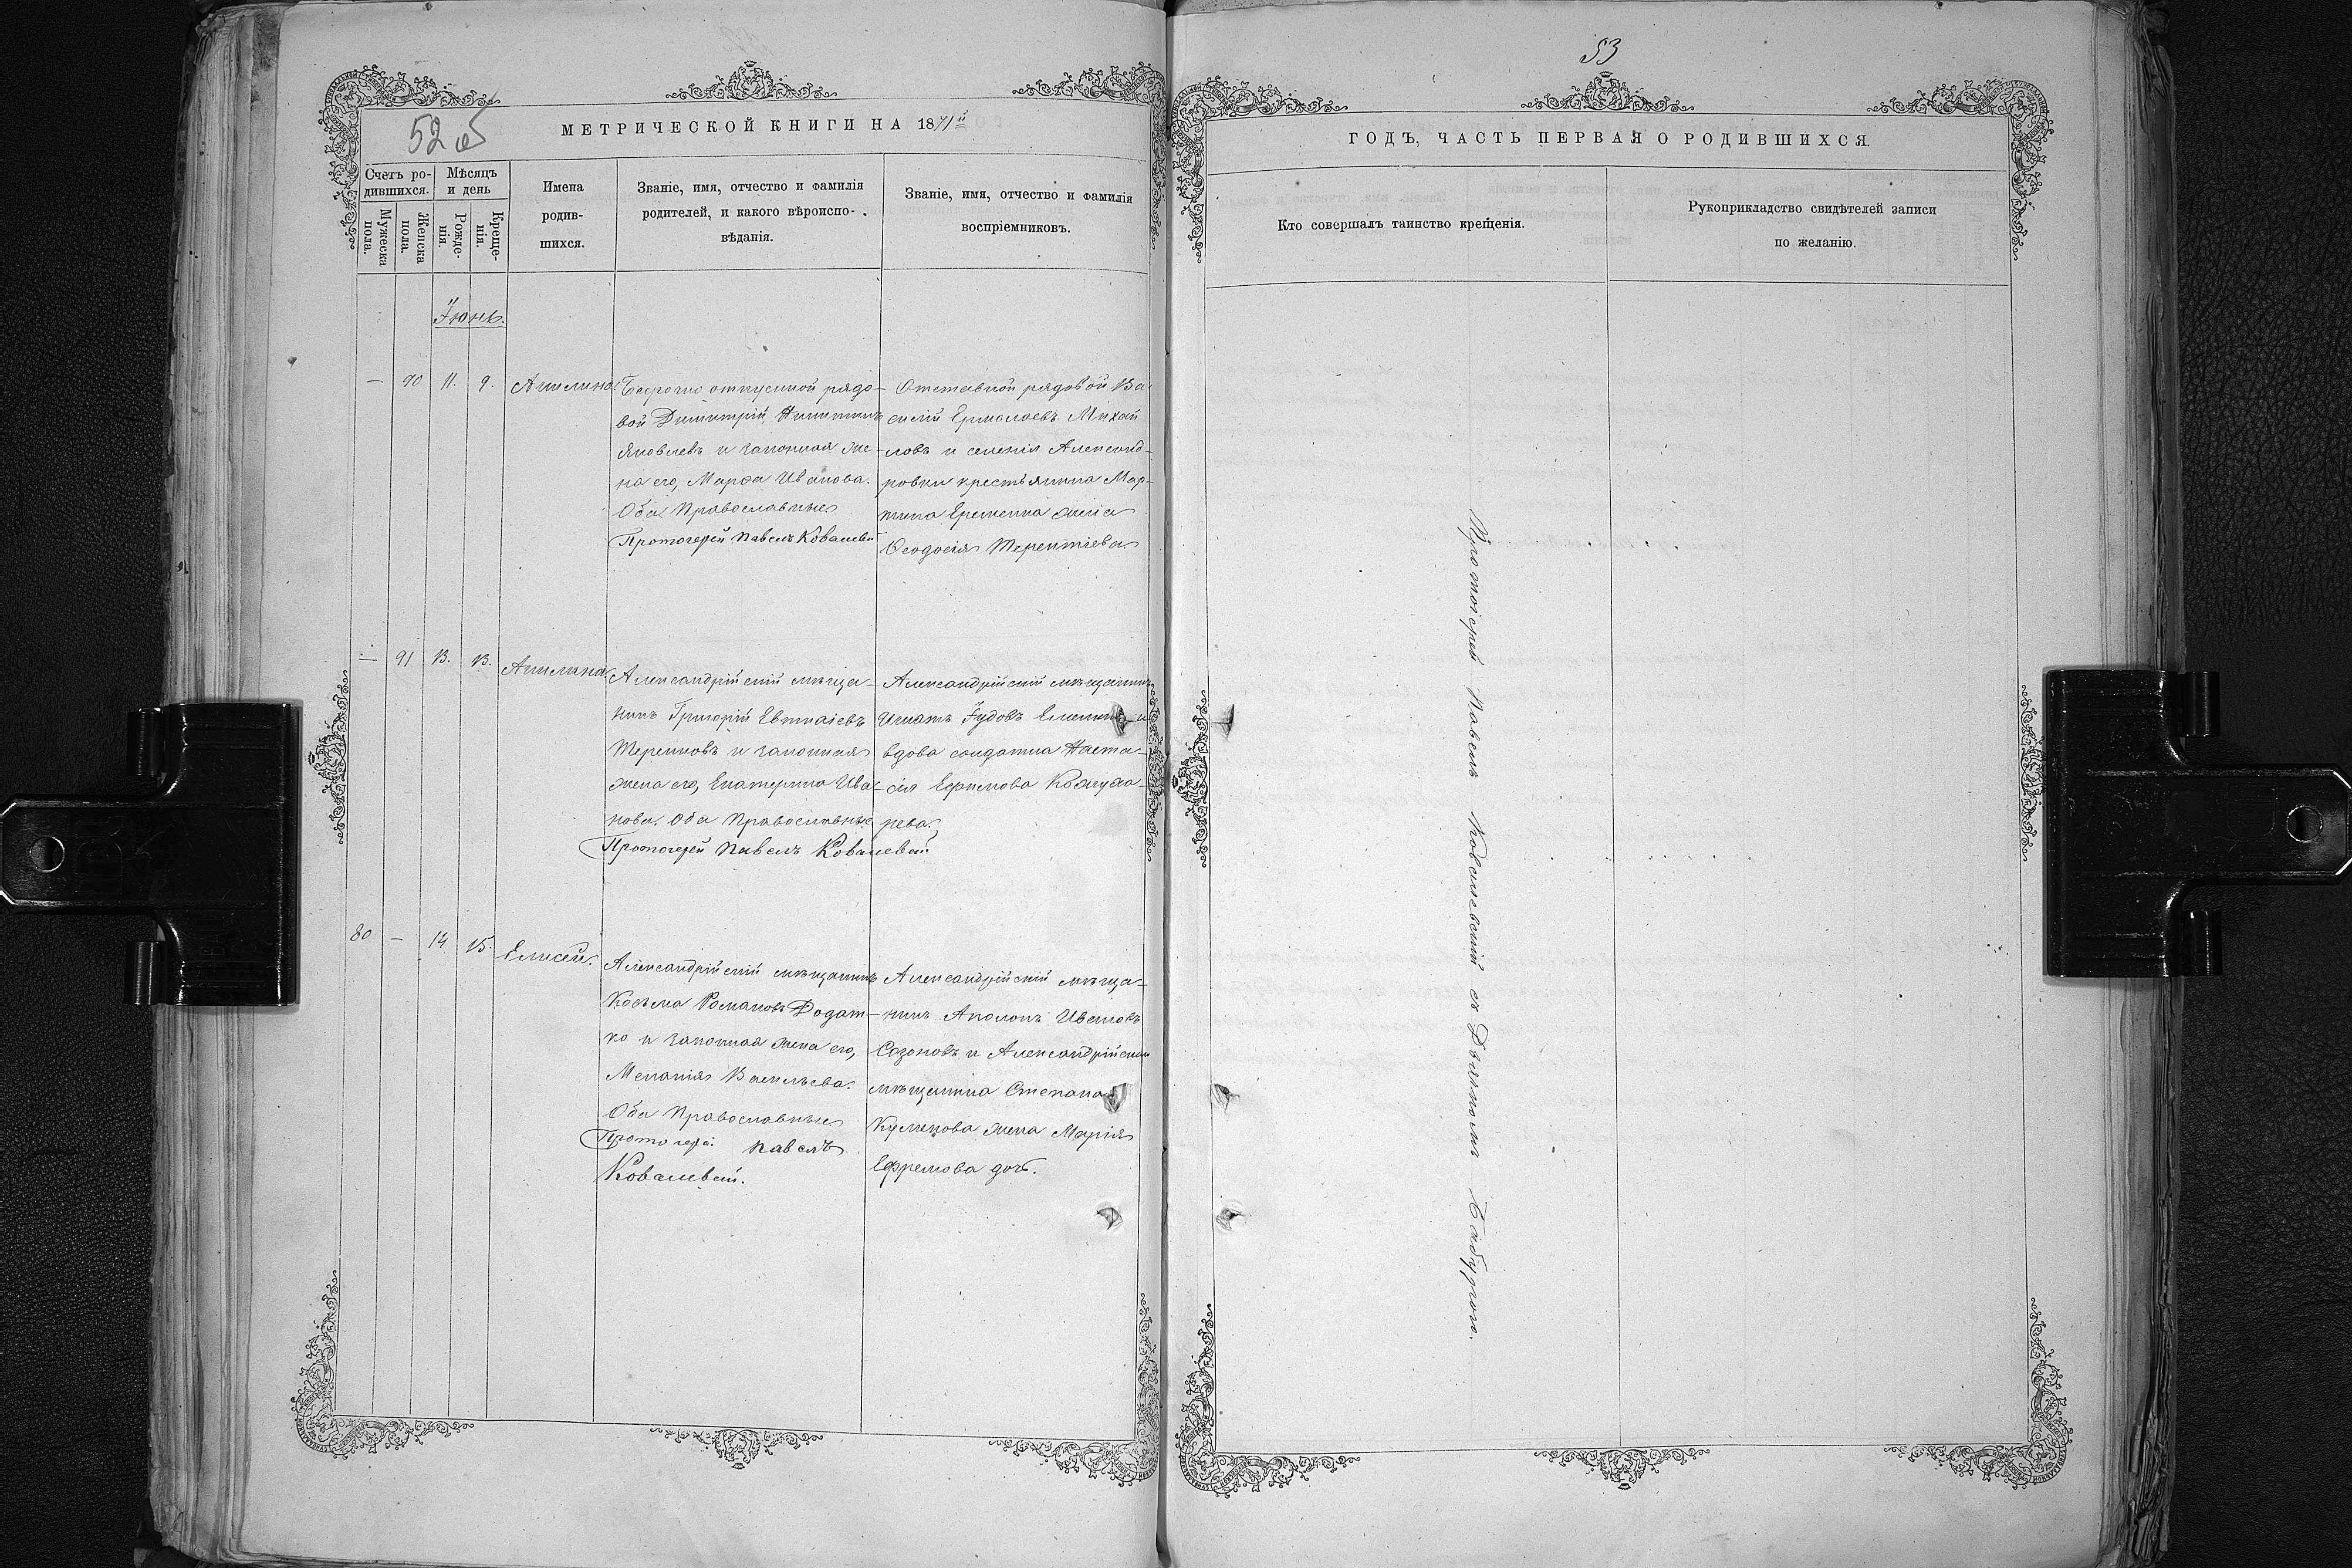 52 об
МЕТРИЧЕСКОЙ КНИГИ НА 1871й
Счетъ ро-
дившихся.
Мужеска
пола.
Женска
пола.
Мѣсяцъ
и день
Рожде-
нія.
Креще-
нія.
Имена
родив-
шихся.
Званіе, имя, отчество и фамилія
родителей, и какого вѣроиспо-
вѣданія.
Званіе, имя, отчество и фамилія
воспріемниковъ.
Іюнь.
— 90 11. 9. Акилина
Безсрочно отпускной рядо-
вой Димитрій Никитинъ
Яковлевъ и законная же-
на его, Марѳа Иванова.
Оба Православные
Протоіерей Павелъ Ковалевскій
Отставной рядовой Ва-
силій Ермолаевъ Михай
ловъ и селенія Александ-
ровки крестьянина Мар-
тина Еременка жена
Ѳеодосія Терентіева
— 91 13. 13. Акилина
Александрійскій мѣща-
нинъ Григорій Евтихіевъ
и законная
жена его, Екатерина Ива-
нова. Оба Православные
Протоіерей Павелъ Ковалевскій
Александрійскій мѣщанинъ
Игнатъ Іудовъ и
вдова солдатка Наста-
сія Ефимова Кожуха-
рева.
80 — 14 15. Елисей.
Александрійскій мѣщанинъ
Косьма Романовъ Додат-
ко и законная жена его,
Меланія Васильева.
Оба Православные
Протоіерей Павелъ
Ковалевскій.
Александрійскій мѣща-
нинъ Аполонъ Ивановъ
Созоновъ и Александрійскаго
мѣщанина Степана
Кулекова жена Марія
Ефремова дочь.
53
ГОДЪ, ЧАСТЬ ПЕРВАЯ О РОДИВШИХСЯ.
Кто совершалъ таинство крещенія.
Рукоприкладство свидѣтелей записи
по желанію.
Протоіерей Павелъ Ковалевскій съ Дьякономъ